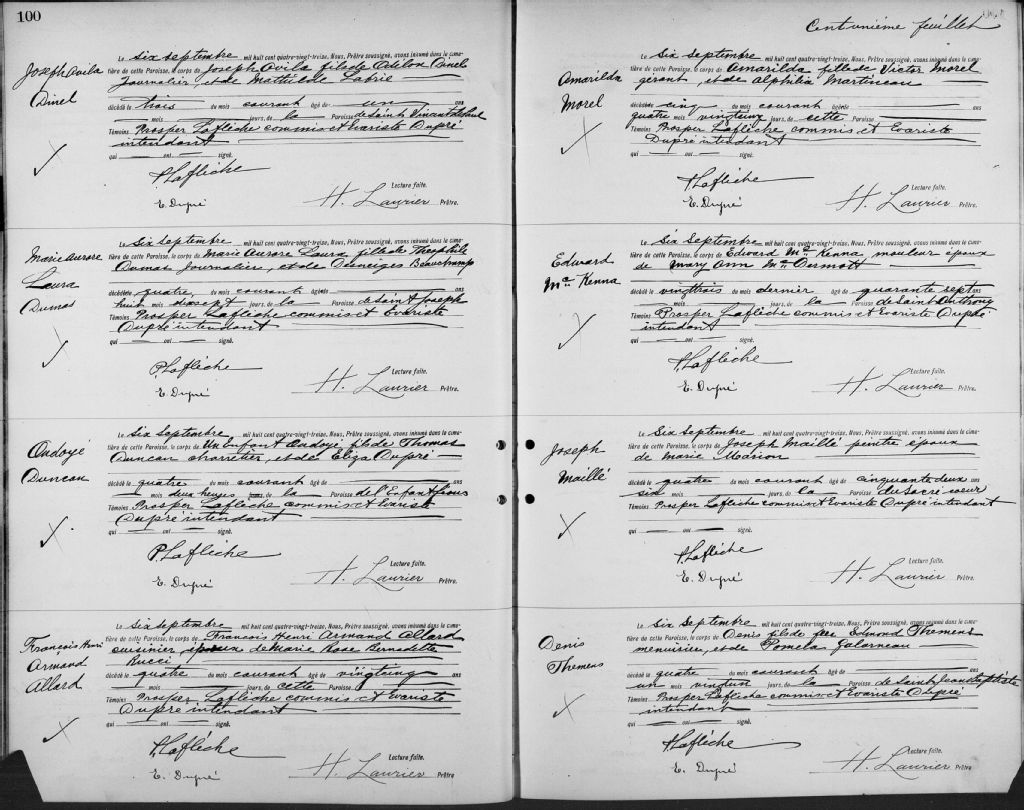 100
Joseph Avila
Dinel
Le six septembre mil huit cent quatre-vingt-treize, Nous, Prêtre soussigné, avons inhumé dans le cime-
tière de cette Paroisse, le corps de Joseph Avila fils de Adélard Dinel
journalier, et de Mathilde Labrie
décédé le trois du mois courant âgé de un ans
mois jours, de la Paroisse de Saint Vincent de Paul
Témoins Prosper Laflèche commis et Evariste Dupré
intendant
qui ont signé.
P. Laflèche
Lecture faite.
E. Dupré
H. Laurier Prêtre.
Marie Aurore
Laura
Dumas
Le Six Septembre mil huit cent quatre-vingt-treize, Nous, Prêtre soussigné, avons inhumé dans le cime-
tière de cette Paroisse, le corps de Marie Aurore Laura fille de Théophile
Dumas journalier, et de Desneiges Beauchamp
décédée quatre du mois courant âgée de ans
huit mois dix sept jours, de la Paroisse de Saint Joseph
Témoins Prosper Laflèche commis et Evariste
Dupré intendant
qui ont signé.
P. Laflèche
Lecture faite.
E. Dupré
H. Laurier Prêtre.
Ondoyé
Duncan
Le Six Septembre mil huit cent quatre-vingt-treize, Nous, Prêtre soussigné, avons inhumé dans le cime-
tière de cette Paroisse, le corps de Un Enfant Ondoyé, fils de Thomas
Duncan charretier, et de Eliza Dupré
décédé le quatre du mois courant âgé de ans
mois deux heures jours, de la Paroisse de l'Enfant Jésus
Témoins Prosper Laflèche commis et Evariste
Dupré intendant
qui ont signé.
P. Laflèche
Lecture faite.
E. Dupré
H. Laurier Prêtre.
François Henri
Armand
Allard
Le six septembre mil huit cent quatre-vingt-treize, Nous, Prêtre soussigné, avons inhumé dans le cime-
tière de cette Paroisse, le corps de François Henri Armand Allard
cuisinier époux de Marie Rose Bernadette
Rucci
décédé le quatre du mois courant âgé de vingt cinq ans
mois jours, de cette Paroisse
Témoins Prosper Laflèche commis et Evariste
Dupré intendant
qui ont signé.
P. Laflèche
Lecture faite.
E. Dupré
H. Laurier Prêtre.
Cent unième feuillet
Amarilda
Morel
Le Six septembre mil huit cent quatre-vingt-treize, Nous, Prêtre soussigné, avons inhumé dans le cime-
tière de cette Paroisse, le corps de Amarilda fille de Victor Morel
gérant, et de Alphilia Martineau
décédée cinq du mois courant âgée de ans
quatre mois vingt cinq jours, de cette Paroisse
Témoins Prosper Laflèche commis et Evariste
Dupré intendant
qui ont signé.
P. Laflèche
Lecture faite.
E. Dupré
H. Laurier Prêtre.
Edward
Mc Kenna
Le Six Septembre mil huit cent quatre-vingt-treize, Nous, Prêtre soussigné, avons inhumé dans le cime-
tière de cette Paroisse, le corps de Edward Mc Kenna mouleur époux
de Mary Ann Mc Dermott
décédé le vingt trois du mois dernier âgé de quarante sept ans
mois jours, de la Paroisse de Saint Anthony
Témoins Prosper Laflèche commis et Evariste Dupré
intendant
qui ont signé.
P. Laflèche
Lecture faite.
E. Dupré
H. Laurier Prêtre.
Joseph
Maillé
Le Six Septembre mil huit cent quatre-vingt-treize, Nous, Prêtre soussigné, avons inhumé dans le cime-
tière de cette Paroisse, le corps de Joseph Maillé peintre époux
de Marie Marion
décédé le quatre du mois courant âgé de cinquante deux ans
six mois jours, de la Paroisse du Sacré coeur
Témoins Prosper Laflèche commis et Evariste Dupré intendant
qui ont signé.
P. Laflèche
Lecture faite.
E. Dupré
H. Laurier Prêtre.
Denis
Themens
Le Six Septembre mil huit cent quatre-vingt-treize, Nous, Prêtre soussigné, avons inhumé dans le cime-
tière de cette Paroisse, le corps de Denis fils de feu Edmond Themens
menuisier, et de Pomela Galarneau
décédé le quatre du mois courant âgé de ans
un mois vingt un jours, de la Paroisse de Saint Jean Baptiste
Témoins Prosper Laflèche commis et Evariste Dupré
intendant
qui ont signé.
P. Laflèche
Lecture faite.
E. Dupré
H. Laurier Prêtre